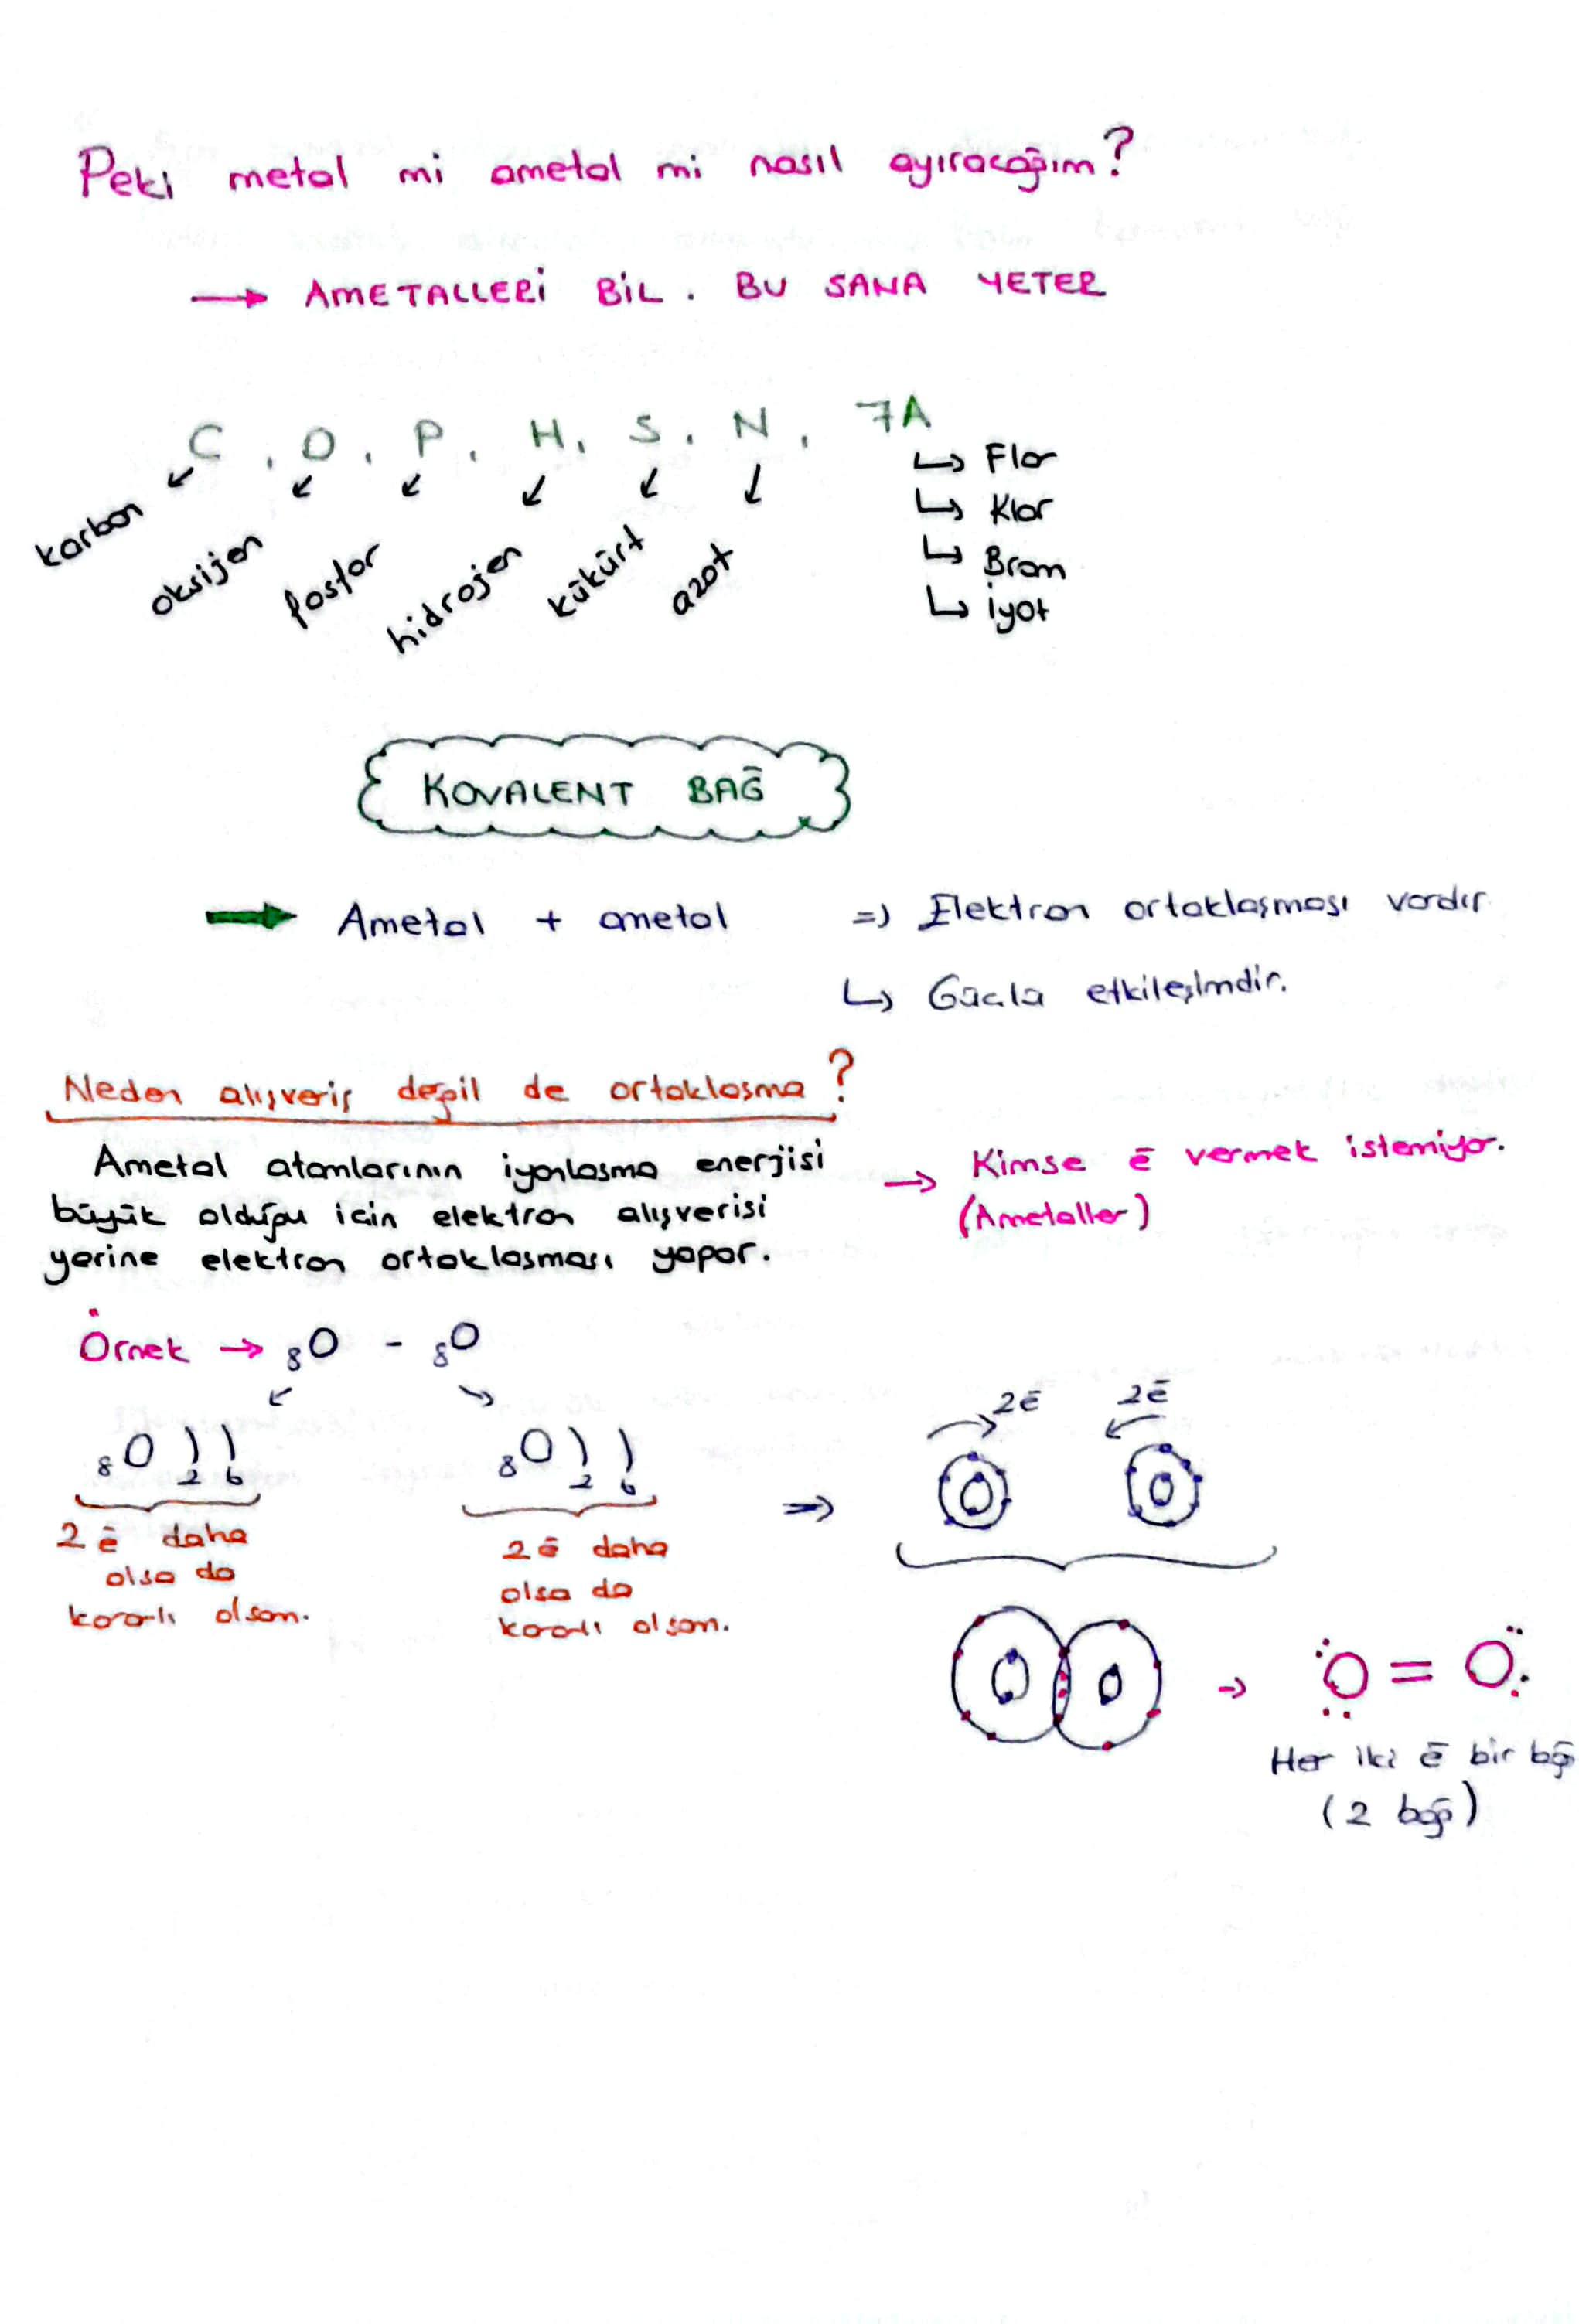 Peki metal mi ametal mi nasıl ayıracağım?
→ AMETALLERİ BİL. BU SANA YETER
C, O, P, H, S, N, 7A
karbon
oksijen
fosfor
hidrojen
kükürt
azot
↳ Flor
↳ Klor
↳ Brom
↳ İyot
KOVALENT BAĞ
→ Ametal + ametal => Elektron ortaklaşması vardır.
↳ Güçlü etkileşimdir.
Neden alışveriş değil de ortaklaşma?
Ametal atomlarının iyonlaşma enerjisi
büyük olduğu için elektron alışverişi
yerine elektron ortaklaşması yapar.
→ Kimse ē vermek istemiyor.
(Ametaller)
Örnek → ₈O - ₈O
₈O ) ) 2 6
₈O ) ) 2 6
2 ē daha
olsa da
kararlı olsam.
2 ē daha
olsa da
kararlı olsam.
⇒
2ē 2ē
→ O = O
Her iki ē bir bağ
(2 bağ)